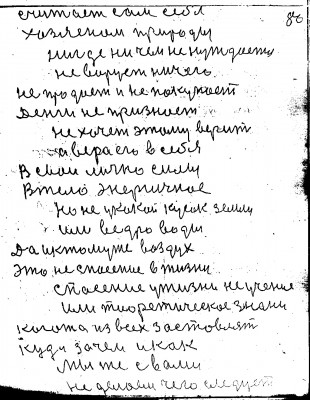 86
считает сам себя
хозяеном природы
нигде ни чем не нуждается
не ворует ничего
не продает и не покупает
Деити не признает
не хочет этому верит
а вера его в себя
В свои лично силы
В тело энергичное
Но не какой кусок земли
или ведро воды
Да и к тому же воздух
Это не спасение в жизни
спасение у жизни не учение
или теоретическое знани
кагота из всех заставлят
куда зачем и как
мы же с вами
не делаем чего следует